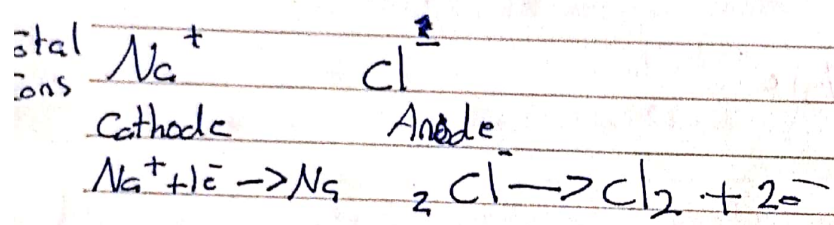 otal Na⁺ Cl⁻
ions
Cathode Anode
Na⁺ + 1e⁻ -> Na 2Cl⁻ -> Cl₂ + 2e⁻